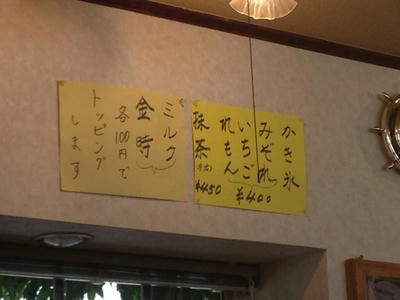 かき氷
みぞれ
いちご
れもん
¥400
抹茶
¥450
ミルク
金時
各100円で
トッピング
します